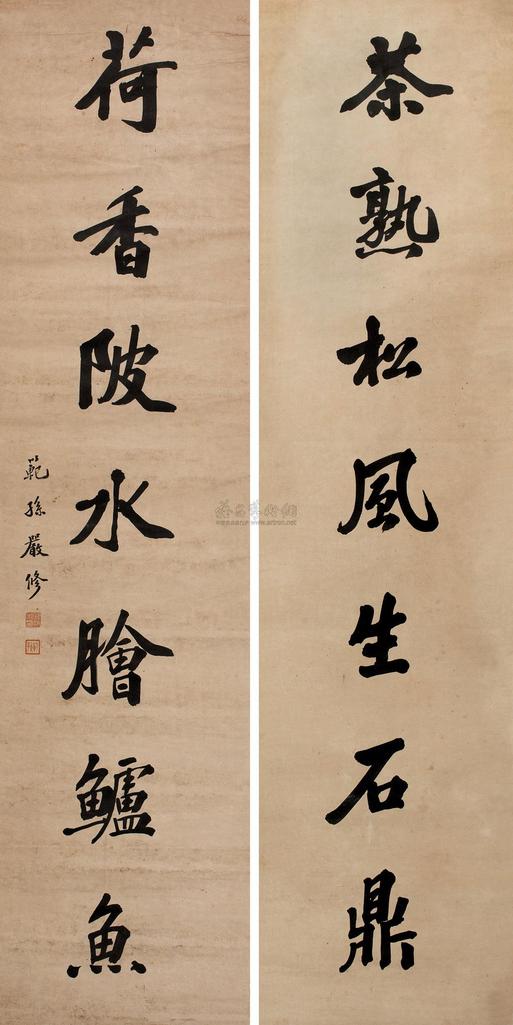 茶熟松風生石鼎
荷香陂水膾鱸魚
範孫嚴修
www.artron.net